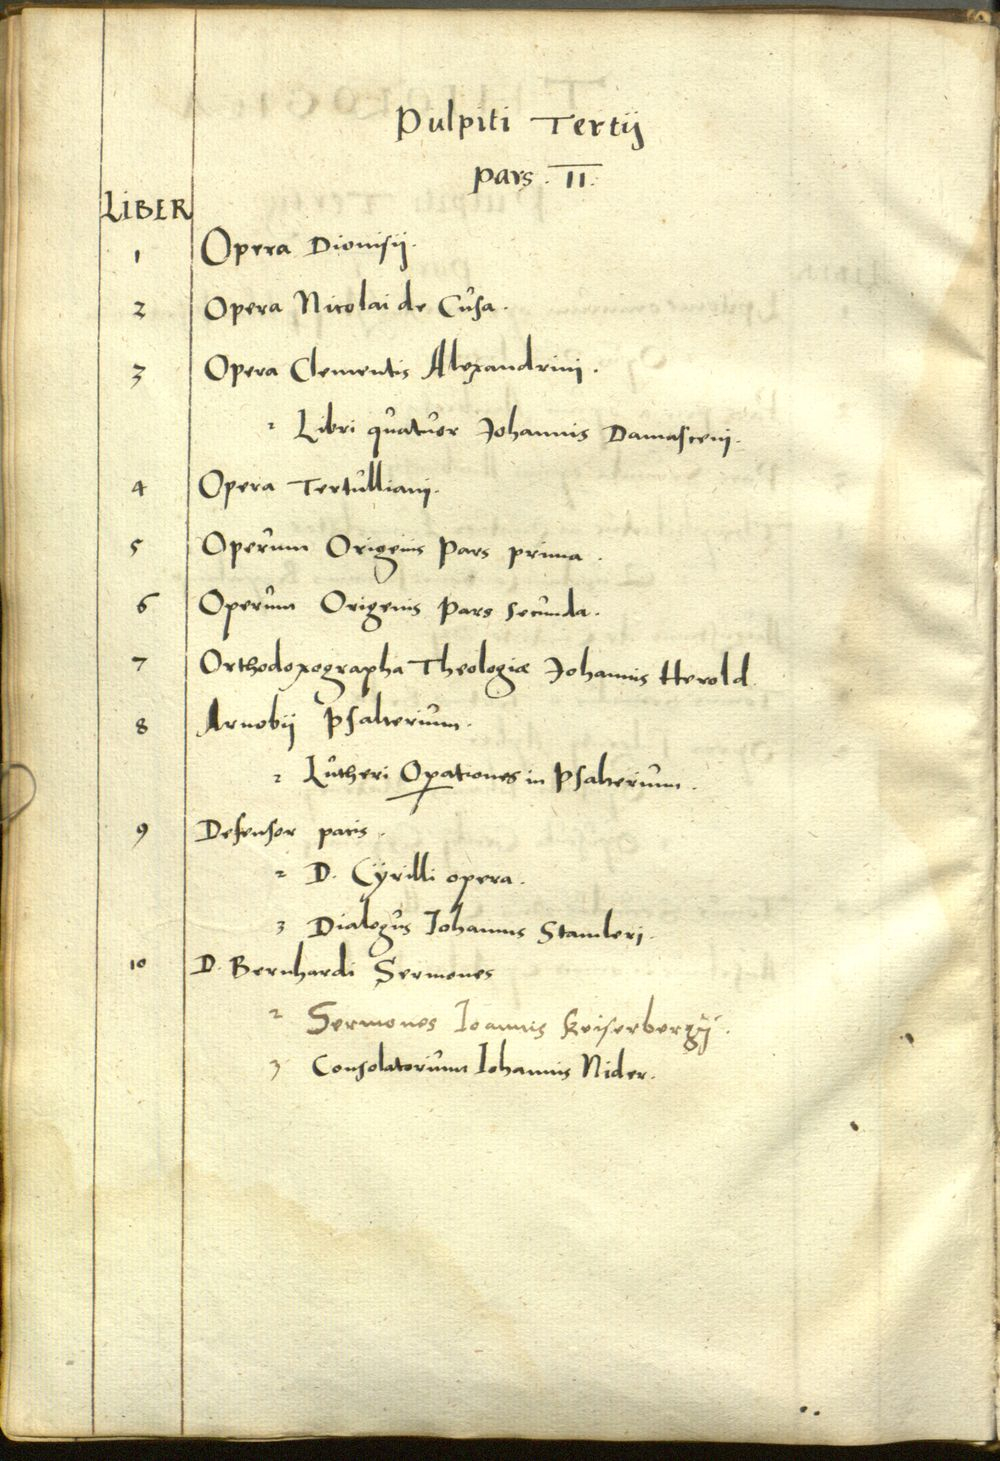 Pulpiti Tertij
pars. II.
LIBER
1 Opera Dionisij.
2 Opera Nicolai de Cusa.
3 Opera Clementis Alexandrini.
2 Libri quatuor Johannis Damasceni.
4 Opera Tertulliani.
5 Operum Origenis Pars prima.
6 Operum Origenis Pars secunda.
7 Orthodoxographa Theologiæ Johannis Herold.
8 Arnobij Psalterium.
2 Lutheri Opationes in Psalterium.
9 Defensor pacis.
2 D. Cyrilli opera.
3 Dialogus Iohannis Stamleri.
10 D. Bernhardi Sermones
2 Sermones Ioannis Keiserbergij.
3 Consolatorium Iohannis Nider.